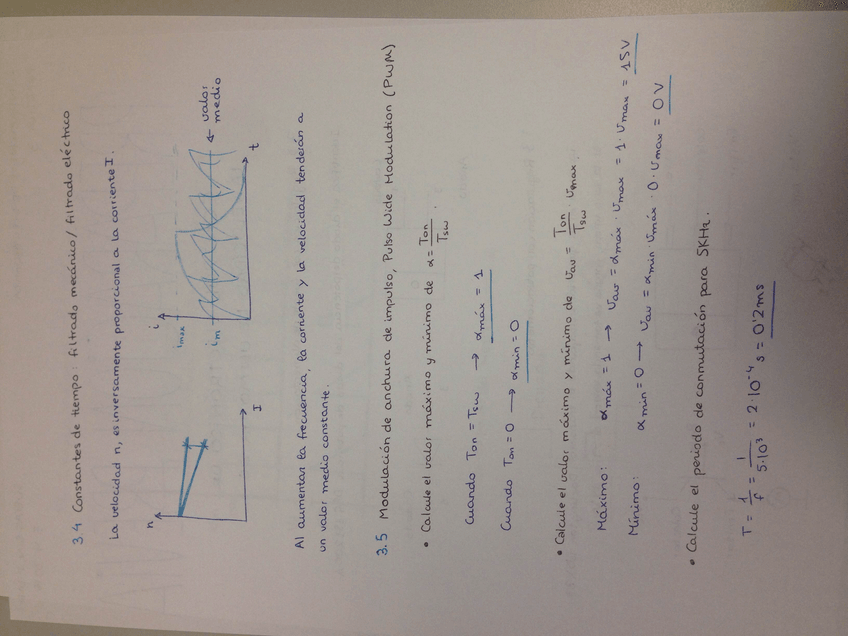 3.4 Constantes de tiempo: filtrado mecánico/filtrado eléctrico
La velocidad n, es inversamente proporcional a la corriente I.
n
I
i
imax
im
valor
medio
t
Al aumentar la frecuencia, la corriente y la velocidad tenderán a
un valor medio constante.
3.5 Modulación de anchura de impulso, Pulso Wide Modulation (PWM)
• Calcule el valor máximo y mínimo de α = Ton/Tsw.
Cuando Ton = Tsw → αmáx = 1
Cuando Ton = 0 → αmin = 0
• Calcule el valor máximo y mínimo de Uav = Ton/Tsw · Umax.
Máximo: αmáx = 1 → Uav = αmáx · Umax = 1 · Umax = 15V
Mínimo: αmin = 0 → Uav = αmin · Umáx · 0 · Umax = 0V
• Calcule el periodo de conmutación para 5KHz.
T = 1/f = 1/5·10³ = 2·10⁻⁴ s = 0'2ms